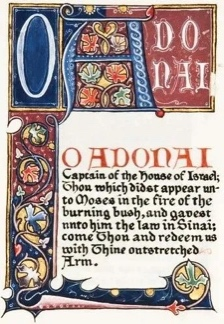 O A DO
NAI
O ADONAI
Captain of the House of Israel;
Thou which didst appear un
to Moses in the fire of the
burning bush, and gavest
unto him the law in Sinai;
come Thou and redeem us
with Thine outstretched
Arm.